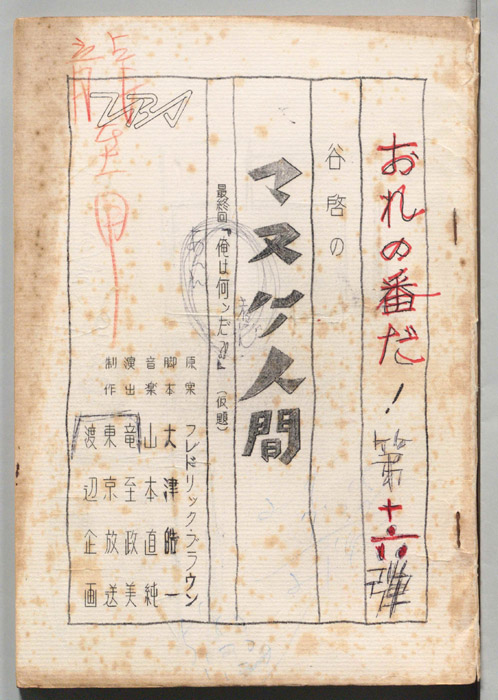 おれの番だ！第十六弾
谷啓の
マヌケ人間
最終回『俺は何ンだ』（仮題）
原案 フレドリック・ブラウン
脚本 大津皓一
音楽 山本直純
演出 竜至政美
制作 東京放送
渡辺企画
TBS